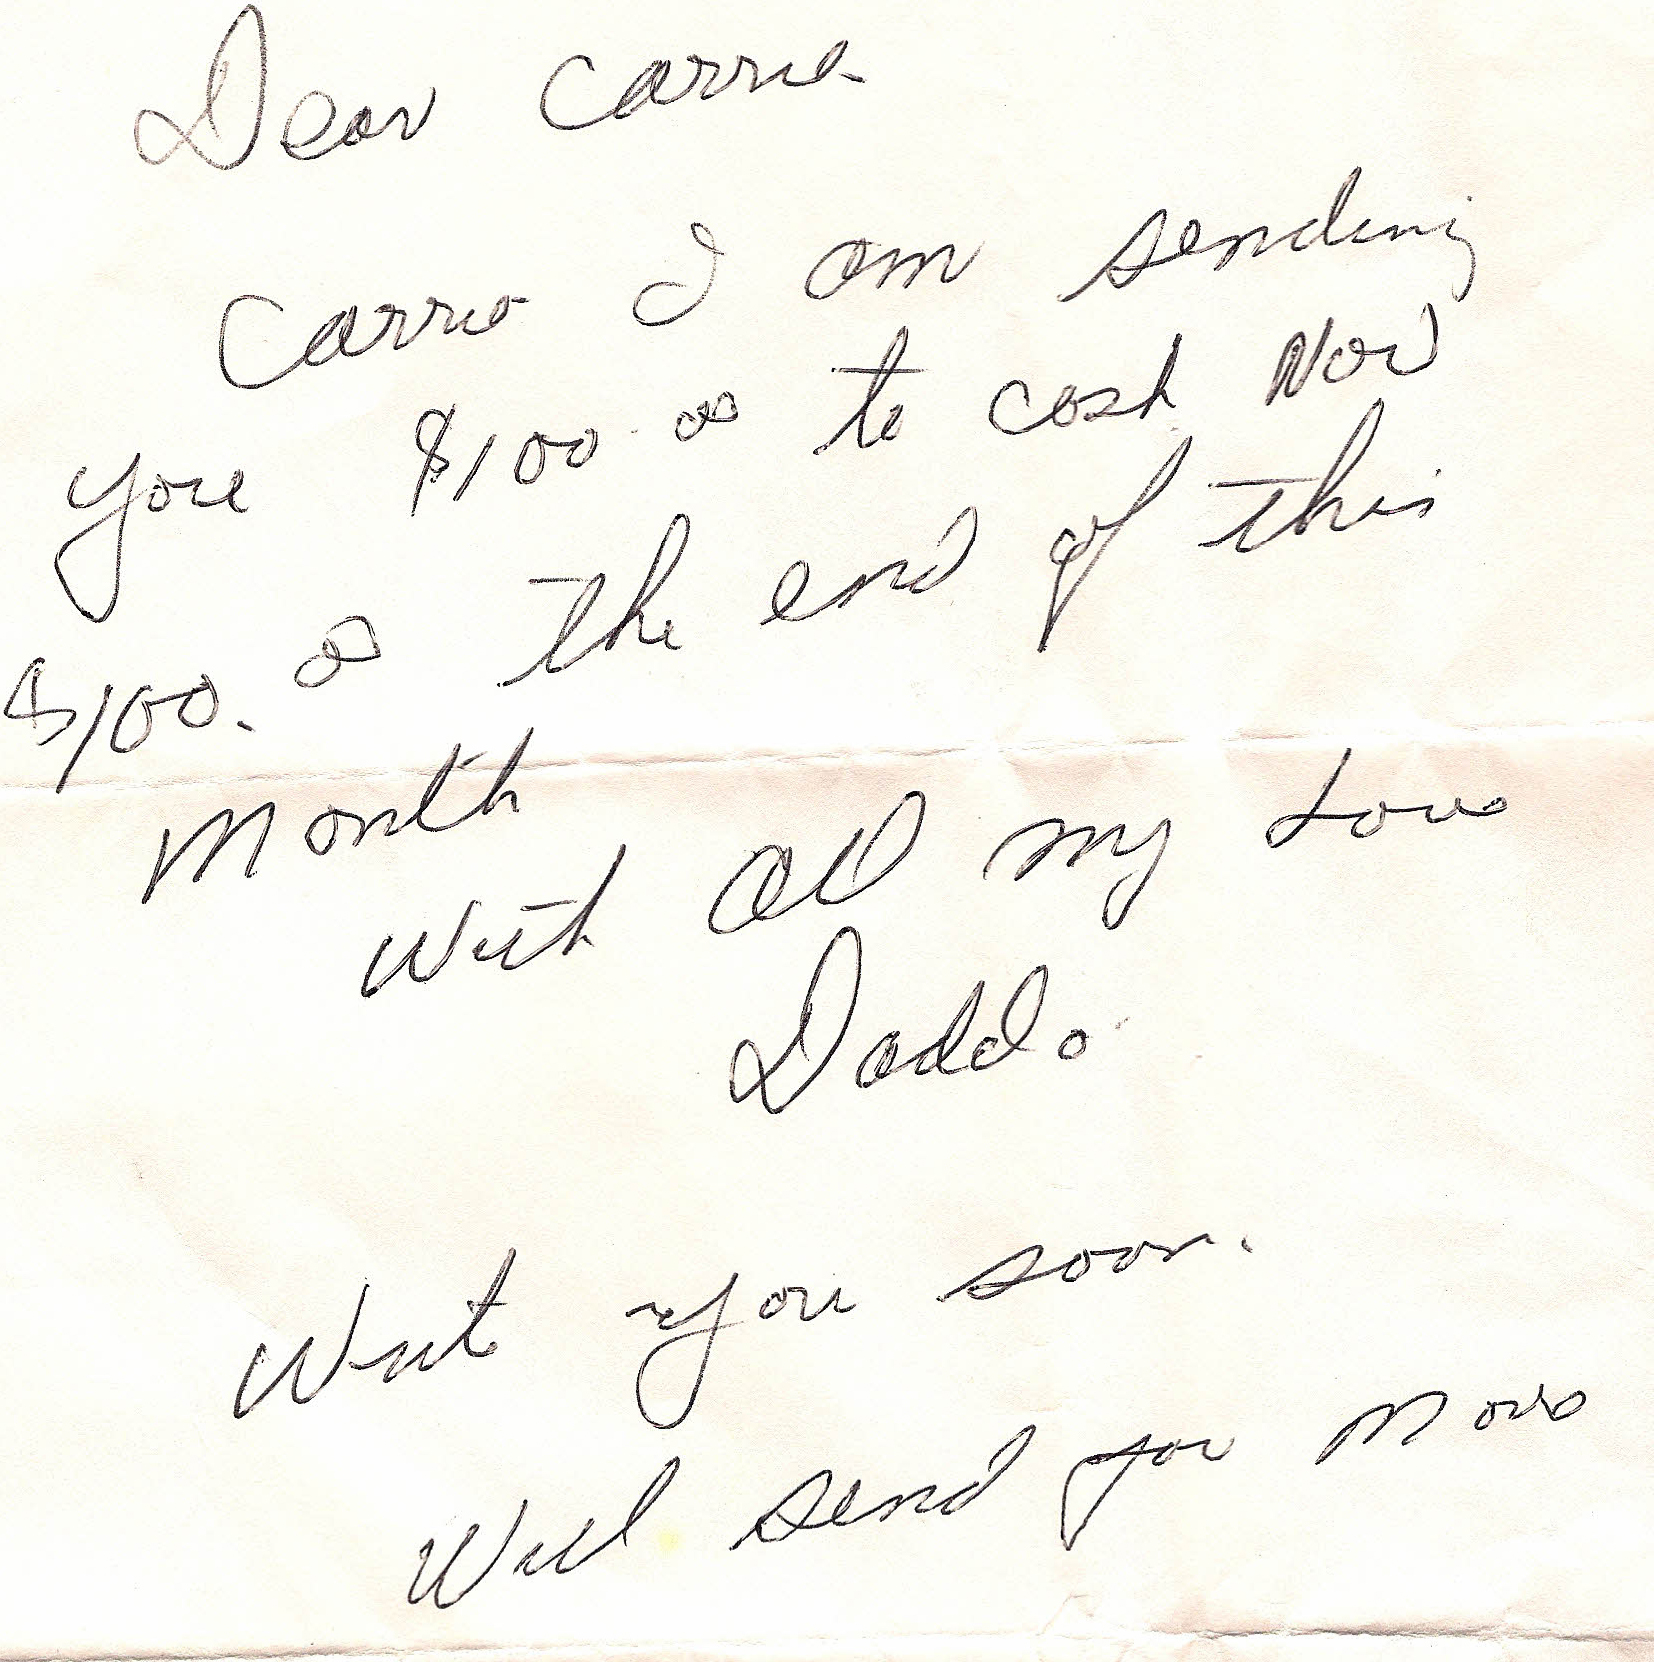 Dear Carrie
Carrie I am sending
you $100.00 to cash Now
$100.00 the end of this
Month
With All my Love
Daddo
Write you soon.
Will send you More